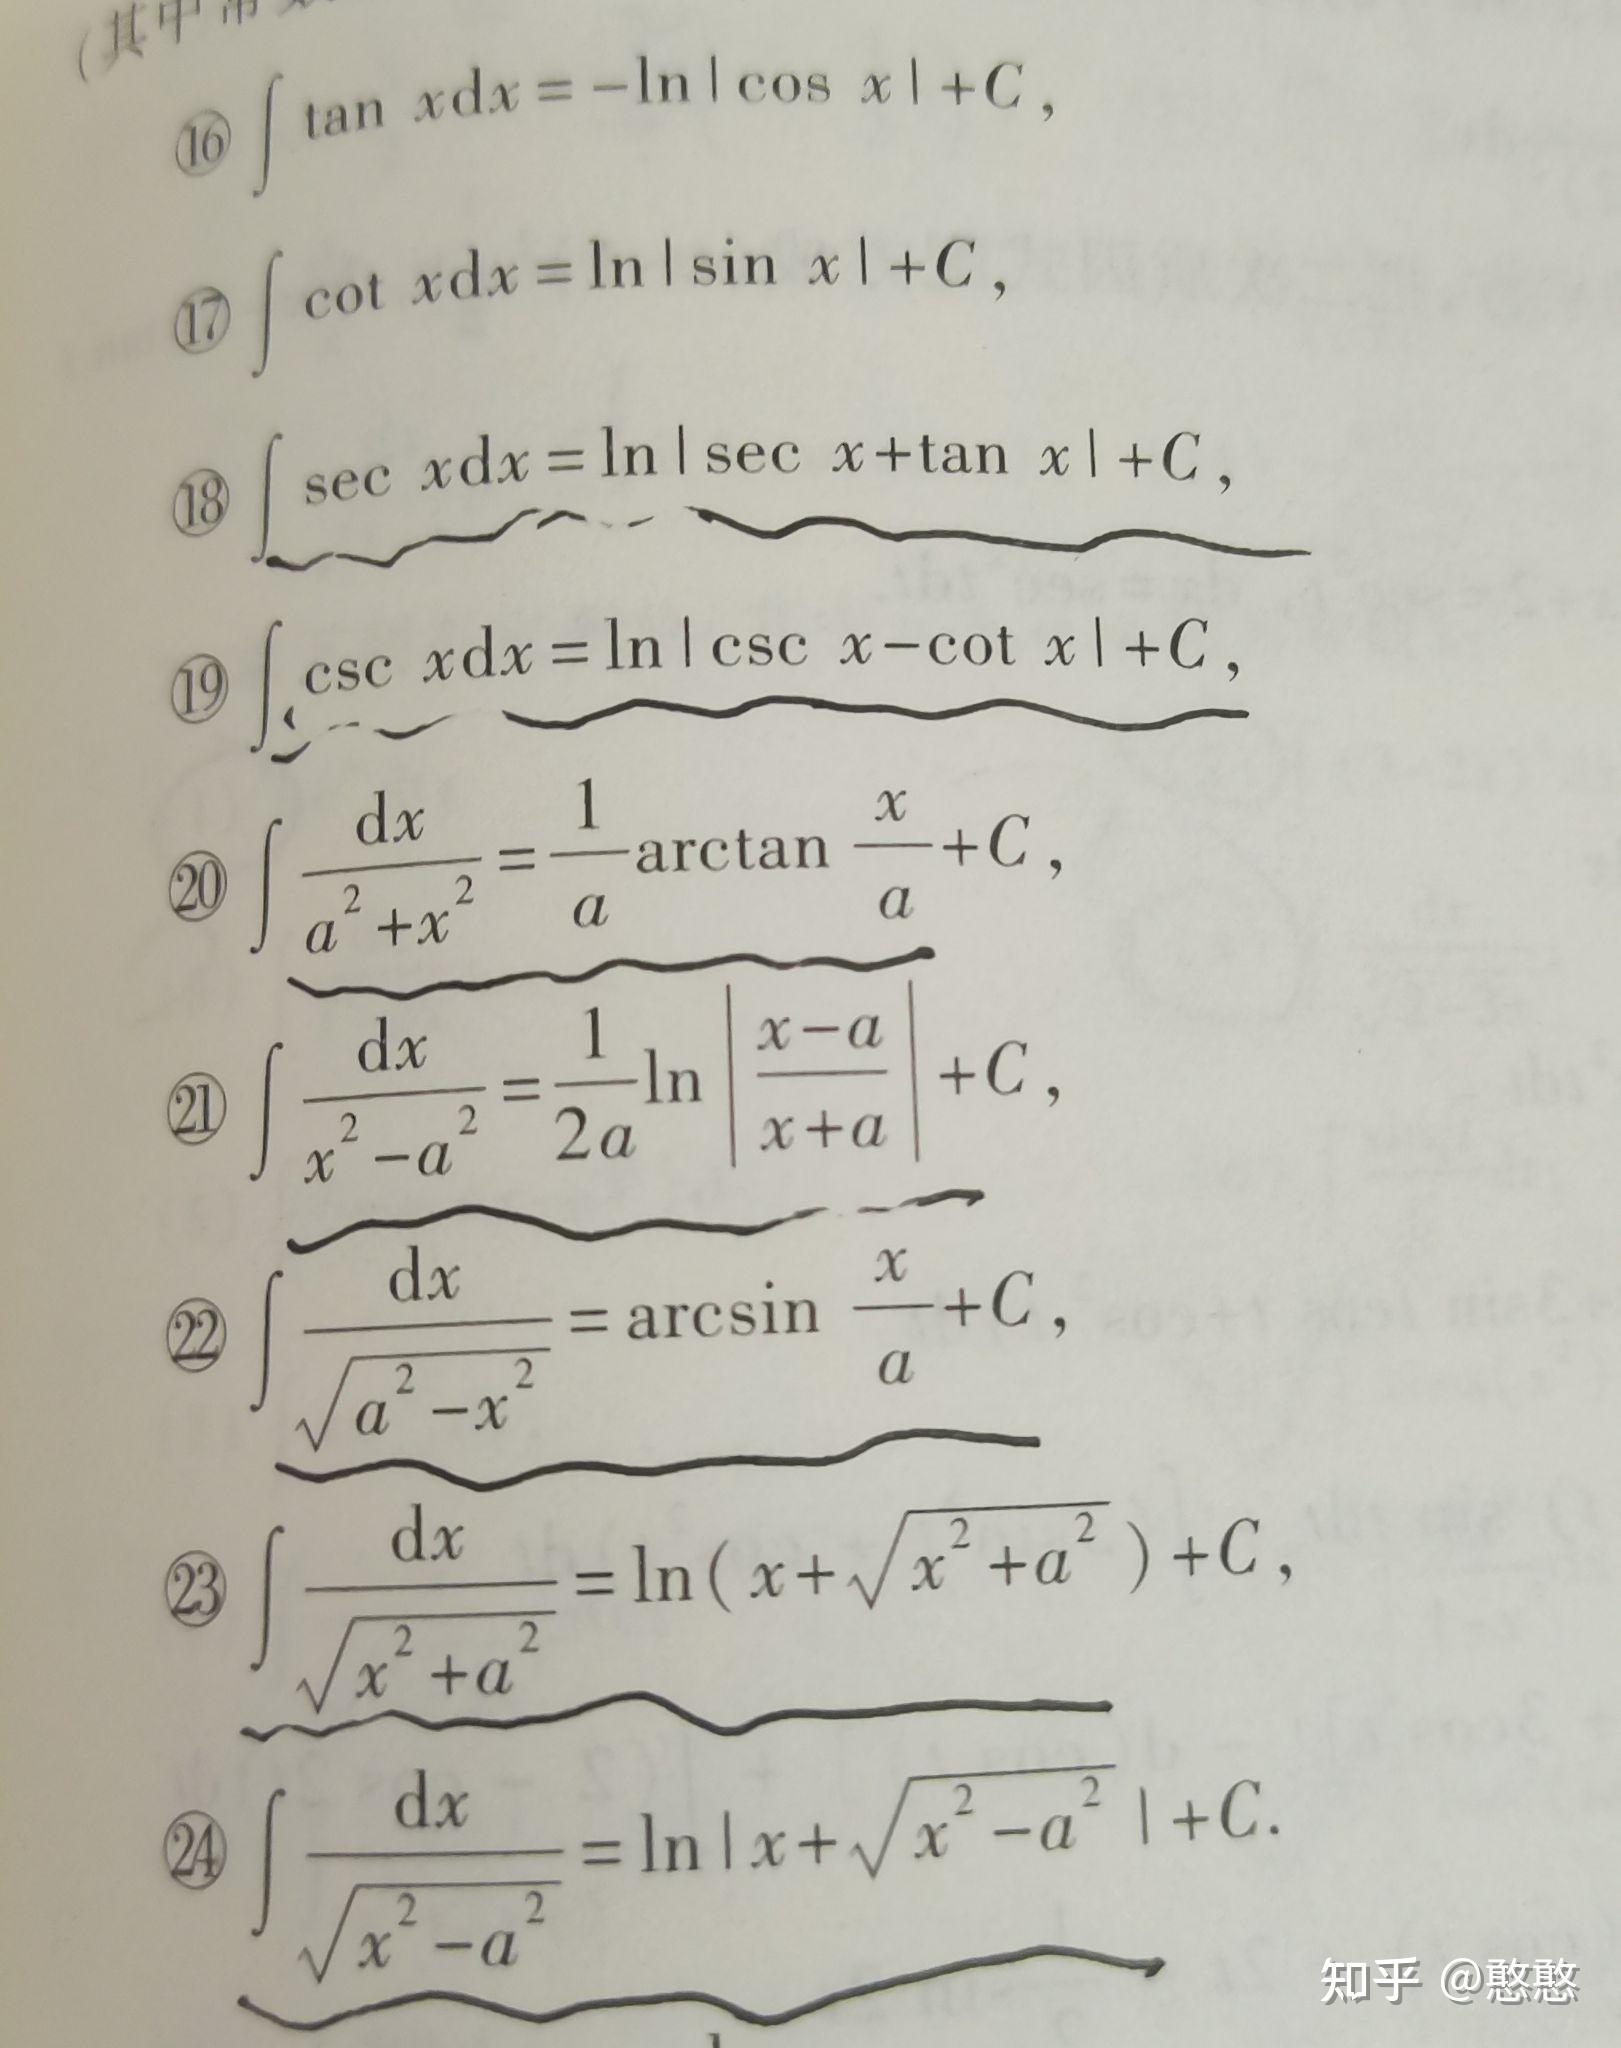 (其中常
⑯ ∫ tan xdx = -ln|cos x|+C,
⑰ ∫ cot xdx = ln|sin x|+C,
⑱ ∫ sec xdx = ln|sec x+tan x|+C,
⑲ ∫ csc xdx = ln|csc x-cot x|+C,
⑳ ∫ dx/(a²+x²) = 1/a arctan x/a +C,
㉑ ∫ dx/(x²-a²) = 1/(2a) ln|(x-a)/(x+a)| +C,
㉒ ∫ dx/√(a²-x²) = arcsin x/a +C,
㉓ ∫ dx/√(x²+a²) = ln(x+√(x²+a²))+C,
㉔ ∫ dx/√(x²-a²) = ln|x+√(x²-a²)|+C.
知乎 @憨憨